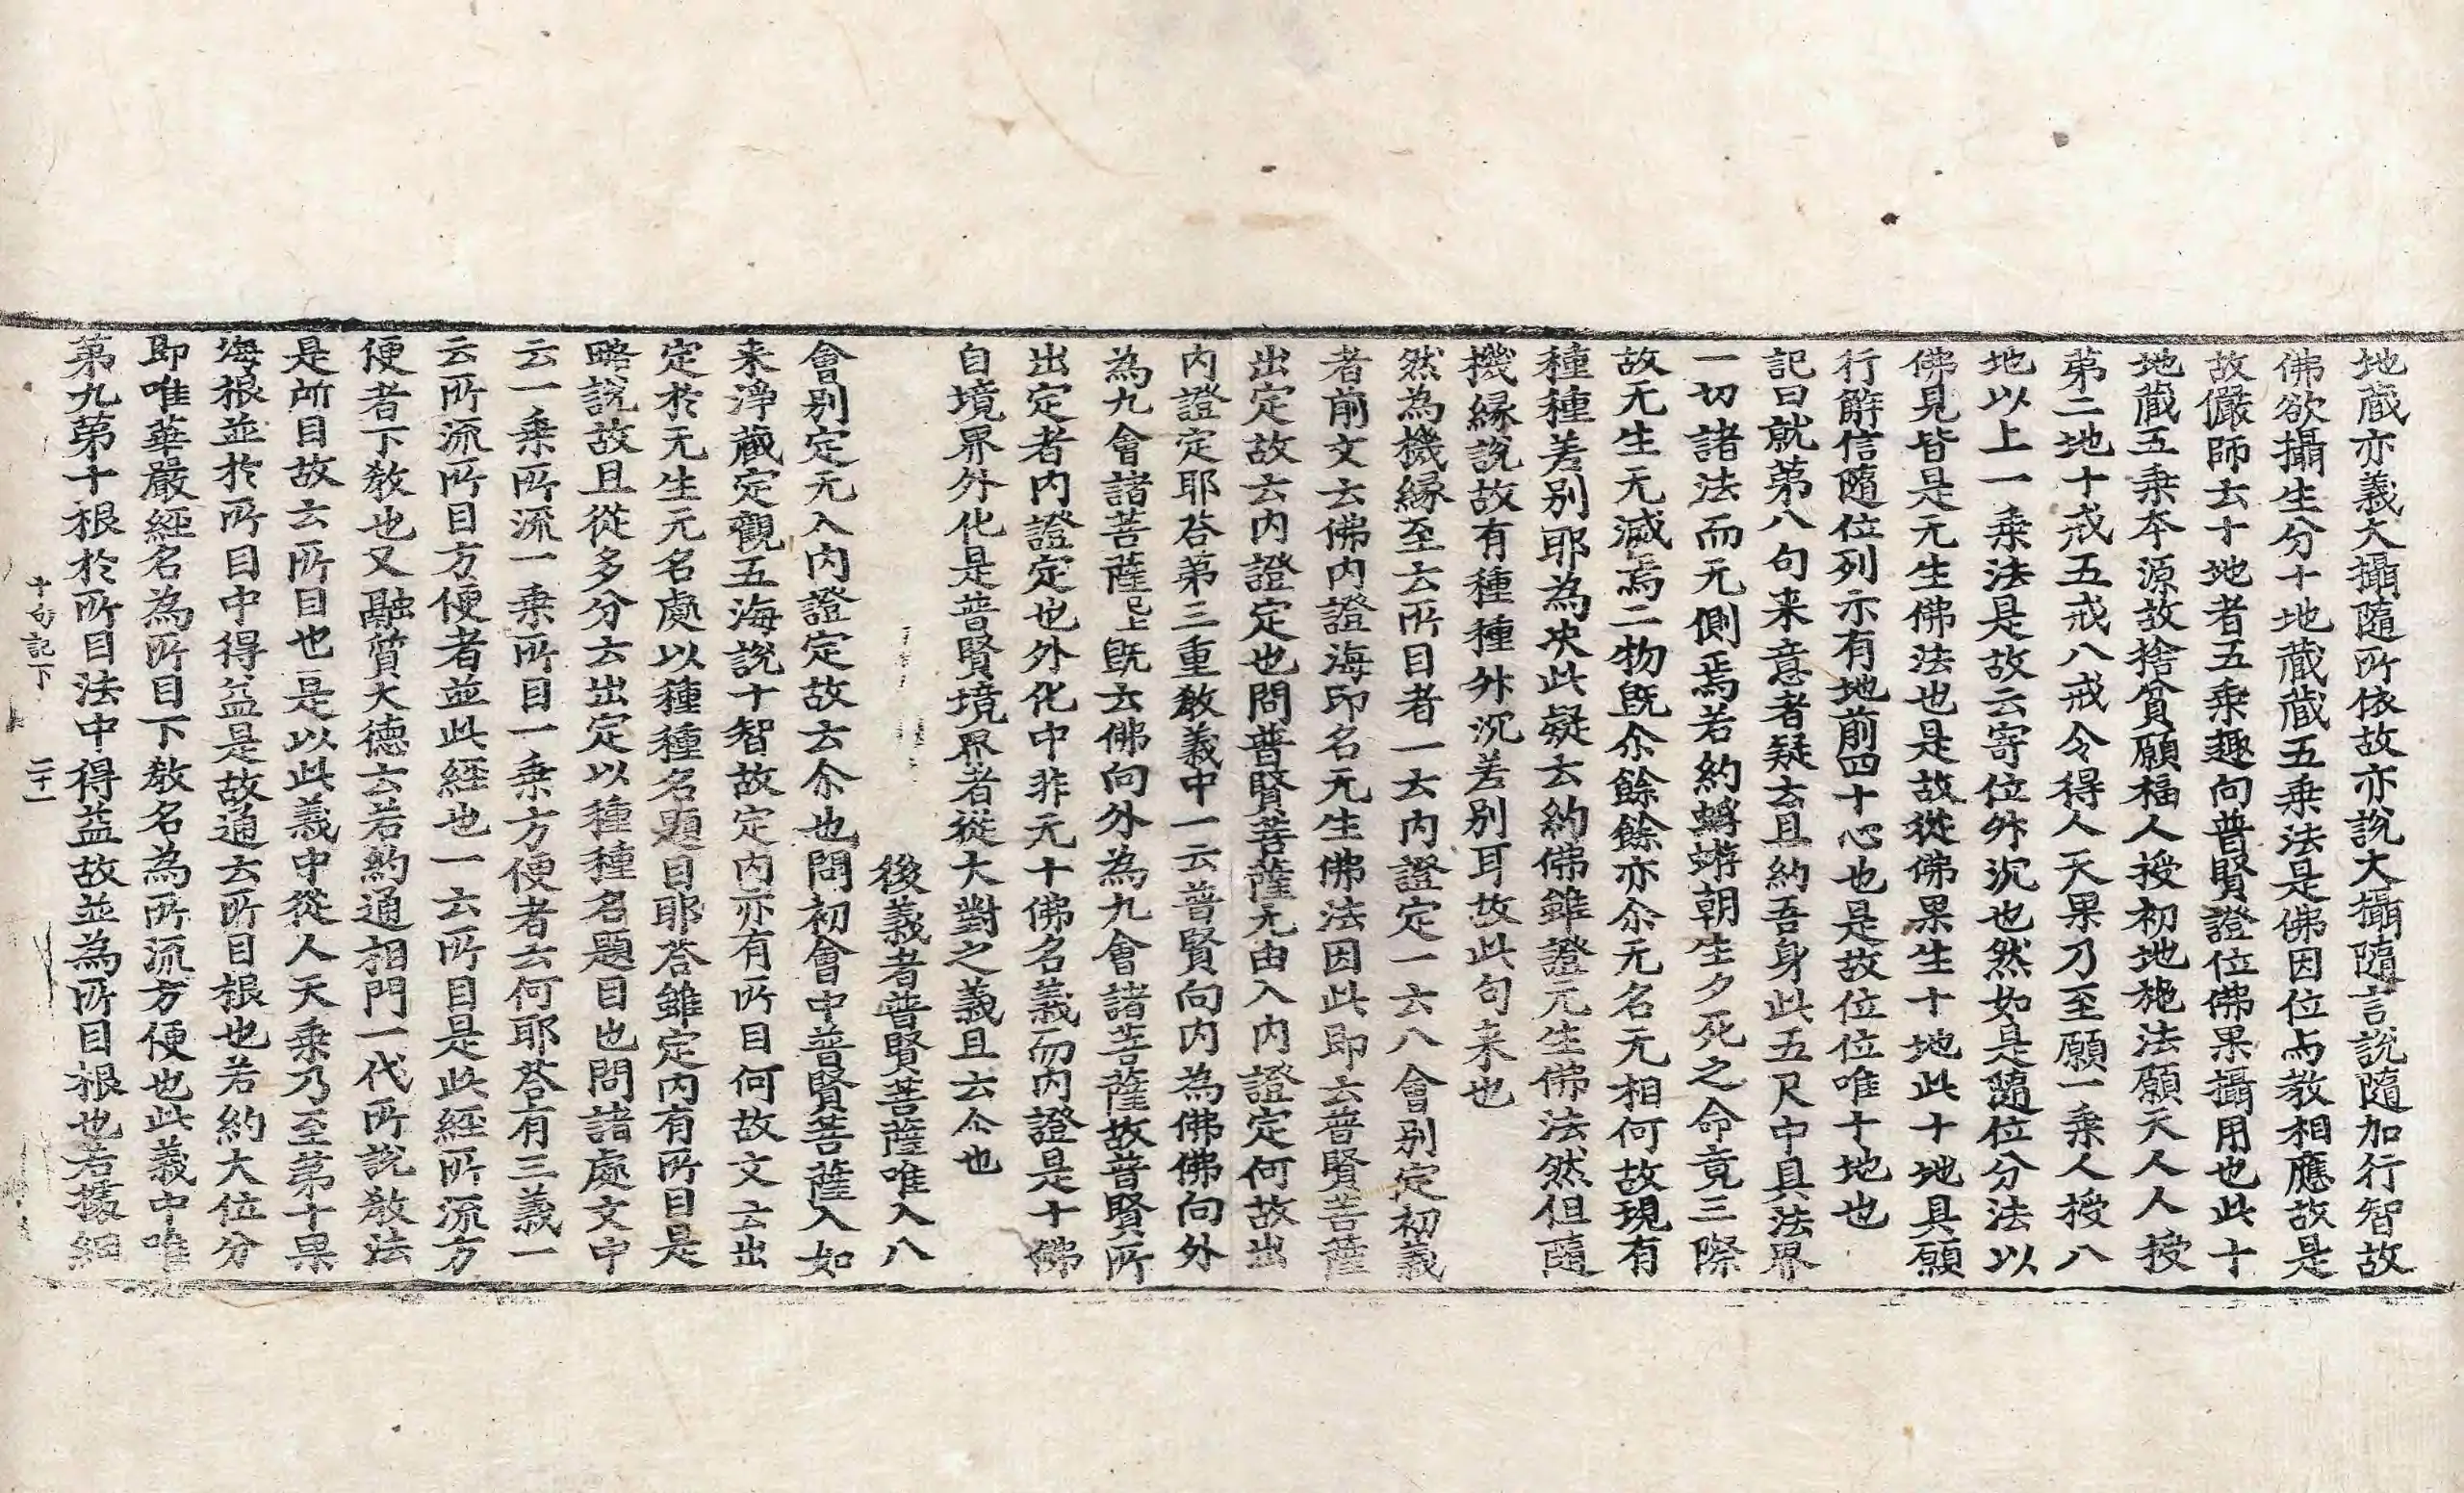 地蔵亦義大攝隨所依故亦說大攝隨言說隨加行智故
佛欲攝生分十地蔵蔵五乗法是佛因位与教相應故是
故儼師云十地者五乗趣向普賢證位佛果攝用也此十
地蔵五乗本源故捨貧願福人授初地施法願天人人授
苐二地十戒五戒八戒令得人天果乃至願一乗人授八
地以上一乗法是故云寄位外沉也然如是隨位分法以
佛見皆是元生佛法也是故從佛果生十地此十地具願
行解信隨位列示有地前四十心也是故位位唯十地也
記曰就苐八句来意者疑云且約吾身此五尺中具法界
一切諸法而元側焉若約蜉蝣朝生夕死之命竟三際
故无生无減焉二物旣尒餘餘亦尒无名无相何故現有
種種差別耶為决此疑云約佛雖證元生佛法然但隨
機縁說故有種種外沉差别耳故此句来也
然為機縁至云所目者一云内證定一云八會别定初義
者前文云佛内證海印名元生佛法因此即云普賢菩薩
出定故云内證定也問普賢菩薩元由入内證定何故出
内證定耶荅苐三重敎義中一云普賢向内為佛佛向外
為九會諸菩薩已上旣云佛向外為九會諸菩薩故普賢所
出定者内證定也外化中非元十佛名義而内證是十佛
自境界外化是普賢境界者從大對之義且云尒也
後義者普賢菩薩唯入八
會别定元入内證定故云尒也問初會中普賢菩薩入如
来淨蔵定觀五海說十智故定内亦有所目何故文云出
定於元生元名處以種種名題目耶荅雖定内有所目是
略說故且從多分云出定以種種名題目也問諸處文中
云一乗所流一乗所目一乗方便者云何耶荅有三義一
云所流所目方便者並此經也一云所目是此經所流方
便者下敎也又融質大德云若約通相門一代所說敎法
是所目故云所目也是以此義中從人天乗乃至苐十果
海根並於所目中得益是故通云所目根也若約大位分
即唯華嚴經名為所目下敎名為所流方便也此義中唯
苐九苐十根於所目法中得益故並為所目根也若據細
十句記下　二十一